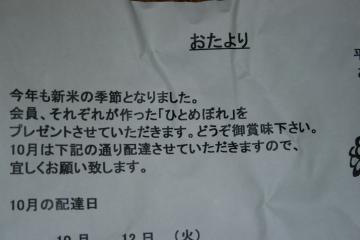 おたより
今年も新米の季節となりました。
会員、それぞれが作った「ひとめぼれ」を
プレゼントさせていただきます。どうぞ御賞味下さい。
10月は下記の通り配達させていただきますので、
宜しくお願い致します。
10月の配達日
10月 12日 (火)